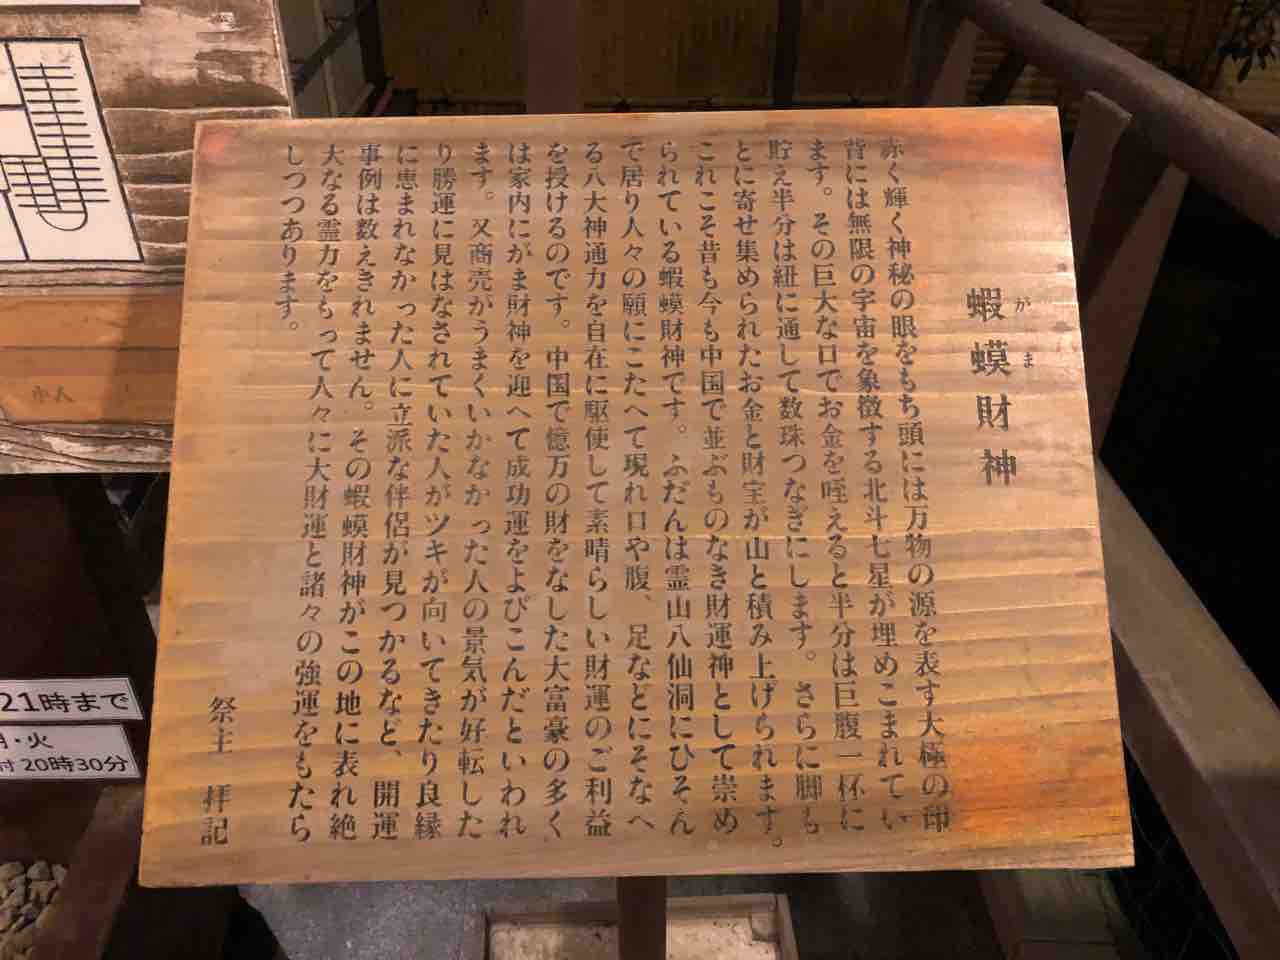 蝦蟇財神
がま
赤く輝く神秘の眼をもち頭には万物の源を表す大極の印
背には無限の宇宙を象徴する北斗七星が埋めこまれてい
ます。その巨大な口でお金を咥えると半分は巨腹一杯に
貯え半分は紐に通して数珠つなぎにします。さらに脚も
とに寄せ集められたお金と財宝が山と積み上げられます。
これこそ昔も今も中国で並ぶものなき財運神として崇め
られている蝦蟇財神です。ふだんは霊山八仙洞にひそん
で居り人々の願にこたへて現れ口や腹、足などにそなへ
る八大神通力を自在に駆使して素晴らしい財運のご利益
を授けるのです。中国で億万の財をなした大富豪の多く
は家内にがま財神を迎へて成功運をよびこんだといわれ
ます。又商売がうまくいかなかった人の景気が好転した
り勝運に見はなされていた人がツキが向いてきたり良縁
に恵まれなかった人に立派な伴侶が見つかるなど、開運
事例は数えきれません。その蝦蟇財神がこの地に表れ絶
大なる霊力をもって人々に大財運と諸々の強運をもたら
しつつあります。
祭主 拝記
21時まで
月・火
付 20時30分